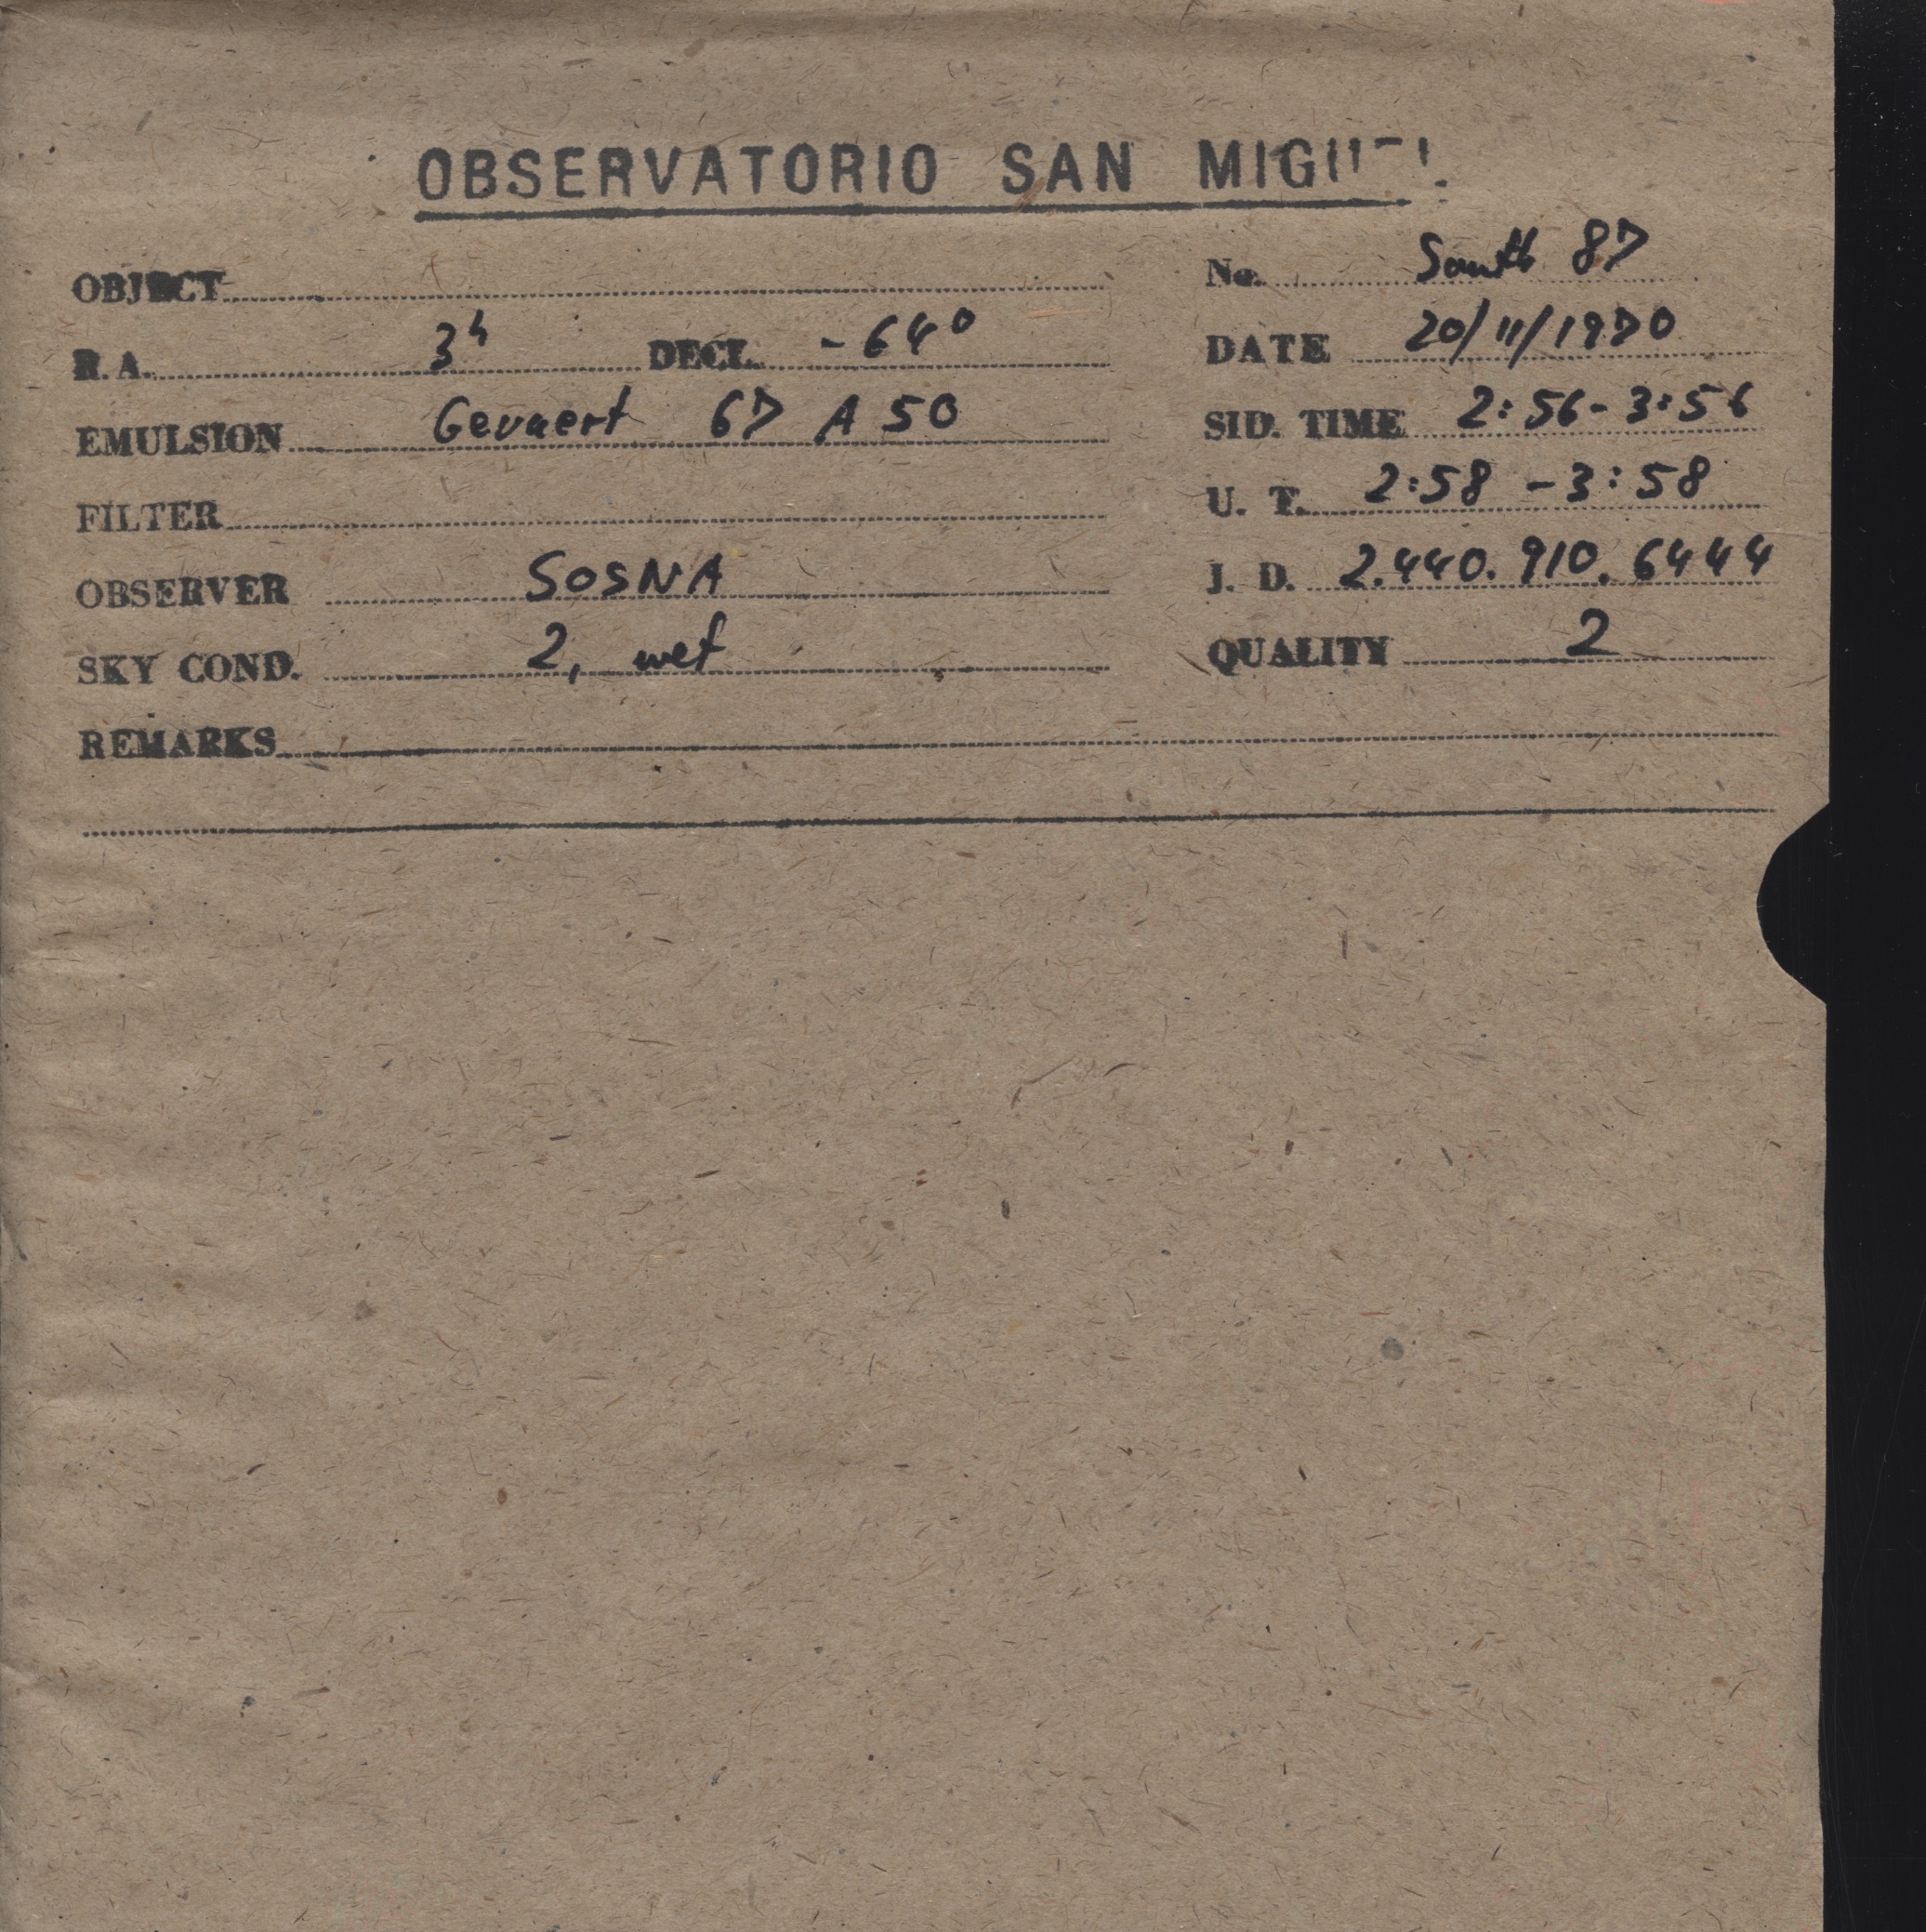 OBSERVATORIO SAN MIGUEL
OBJECT
No. South 87
R.A. 3h DECL. -64°
DATE 20/11/1970
EMULSION Gevaert 67 A 50
SID. TIME 2:56-3:56
FILTER
U. T. 2:58-3:58
OBSERVER SOSNA
J. D. 2.440.910.6444
SKY COND. 2, wet
QUALITY 2
REMARKS